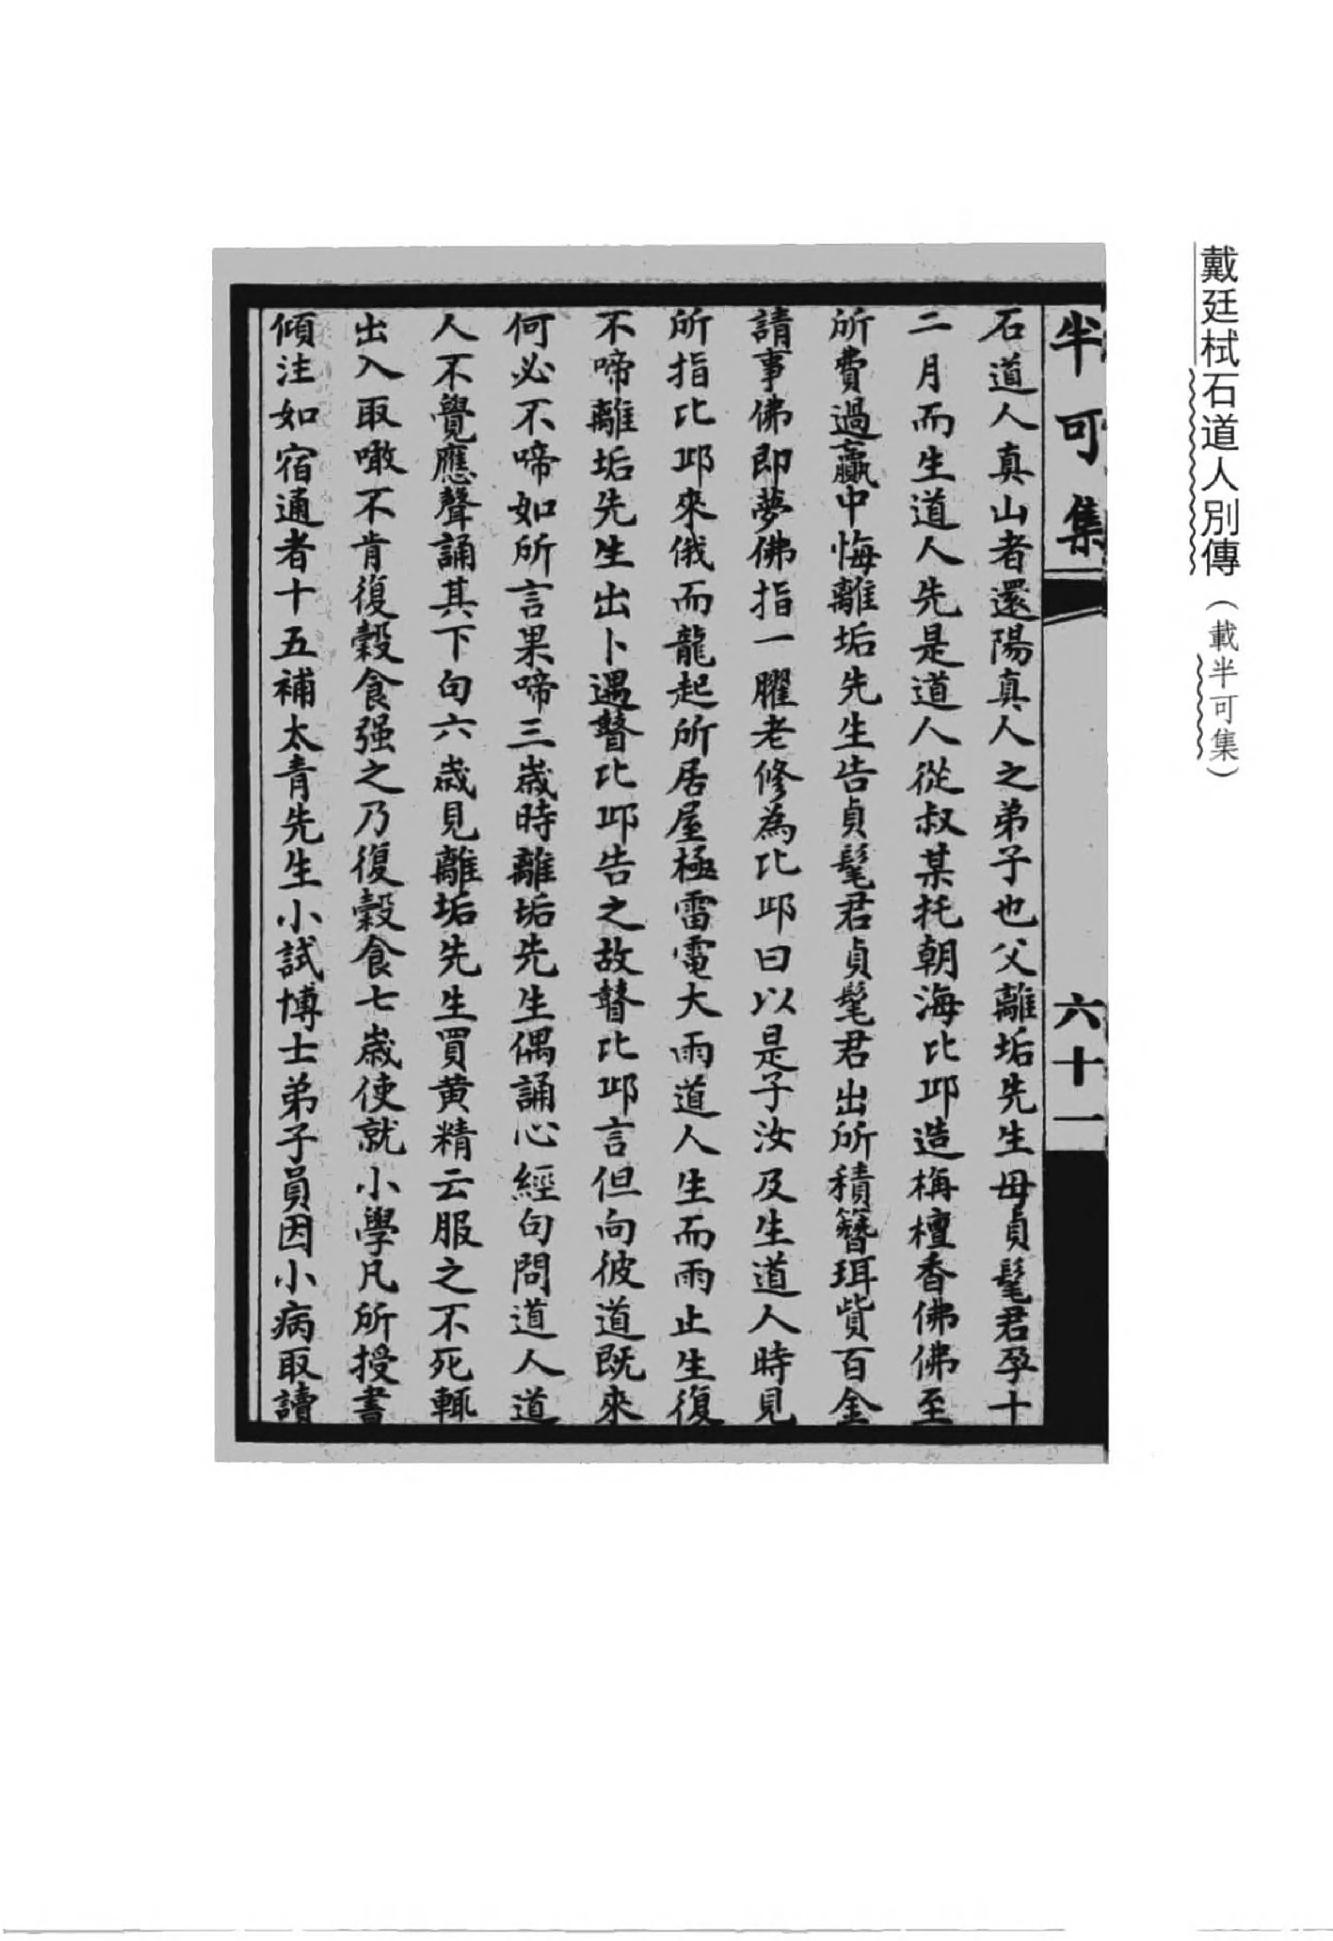 戴廷栻石道人別傳（載半可集）
半可集
六十一
石道人真山者還陽真人之弟子也父離垢先生母貞髦君孕十
二月而生道人先是道人從叔某托朝海比邱造栴檀香佛佛至
所費過贏中悔離垢先生告貞髦君貞髦君出所積簪珥貲百金
請事佛即夢佛指一臞老修為比邱曰以是子汝及生道人時見
所指比邱來俄而龍起所居屋極雷電大雨道人生而雨止生復
不啼離垢先生出卜遇瞽比邱告之故瞽比邱言但向彼道既來
何必不啼如所言果啼三歲時離垢先生偶誦心經句問道人道
人不覺應聲誦其下句六歲見離垢先生買黃精云服之不死輒
出入取噉不肯復穀食强之乃復穀食七歲使就小學凡所授書
傾注如宿通者十五補太青先生小試博士弟子員因小病取讀